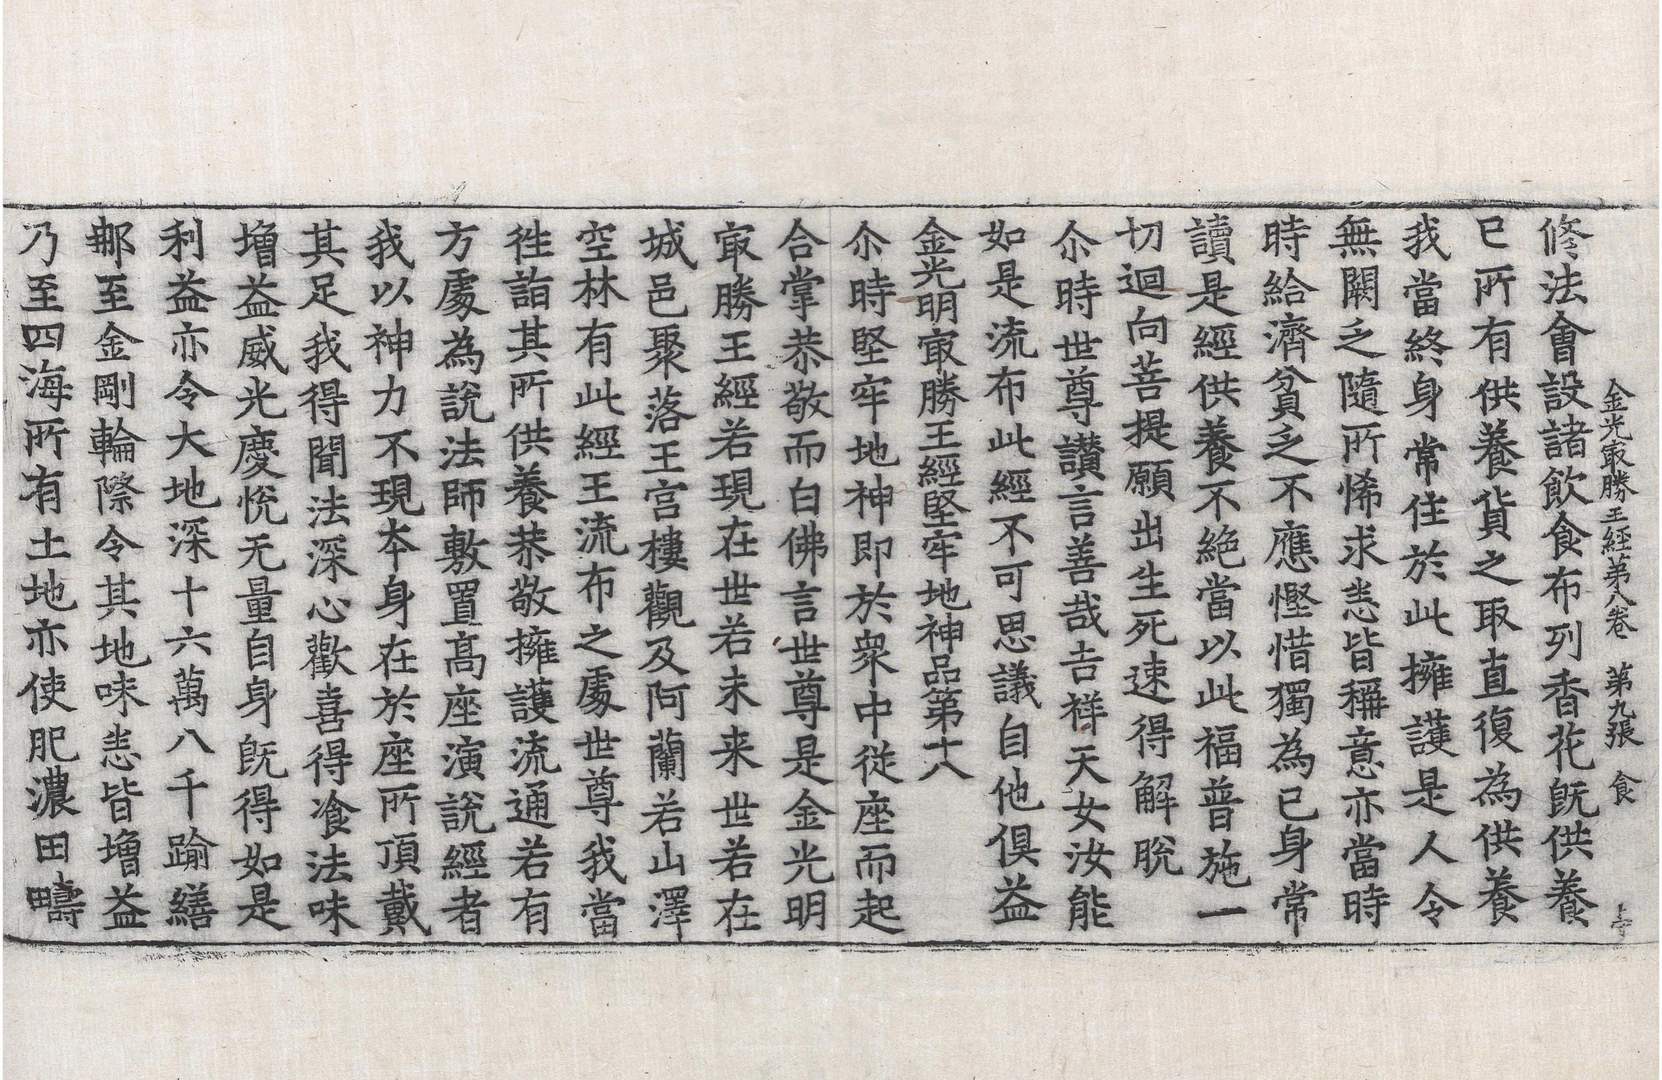 金光㝡勝王經第八卷　第九張　食
修法會設諸飲食布列香花旣供養
已所有供養貨之取直復為供養
我當終身常住於此擁護是人令
無闕乏隨所悕求悉皆稱意亦當時
時給濟貧乏不應慳惜獨為己身常
讀是經供養不絕當以此福普施一
切迴向菩提願出生死速得解脫
尒時世尊讃言善哉吉祥天女汝能
如是流布此經不可思議自他俱益
金光明㝡勝王經堅牢地神品第十八
尒時堅牢地神即於衆中從座而起
合掌恭敬而白佛言世尊是金光明
㝡勝王經若現在世若未来世若在
城邑聚落王宮樓觀及阿蘭若山澤
空林有此經王流布之處世尊我當
徃詣其所供養恭敬擁護流通若有
方處為說法師敷置高座演說經者
我以神力不現本身在於座所頂戴
其足我得聞法深心歡喜得飡法味
增益威光慶悅无量自身旣得如是
利益亦令大地深十六萬八千踰繕
那至金剛輪際令其地味悉皆增益
乃至四海所有土地亦使肥濃田疇